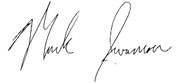 Mark Swanson